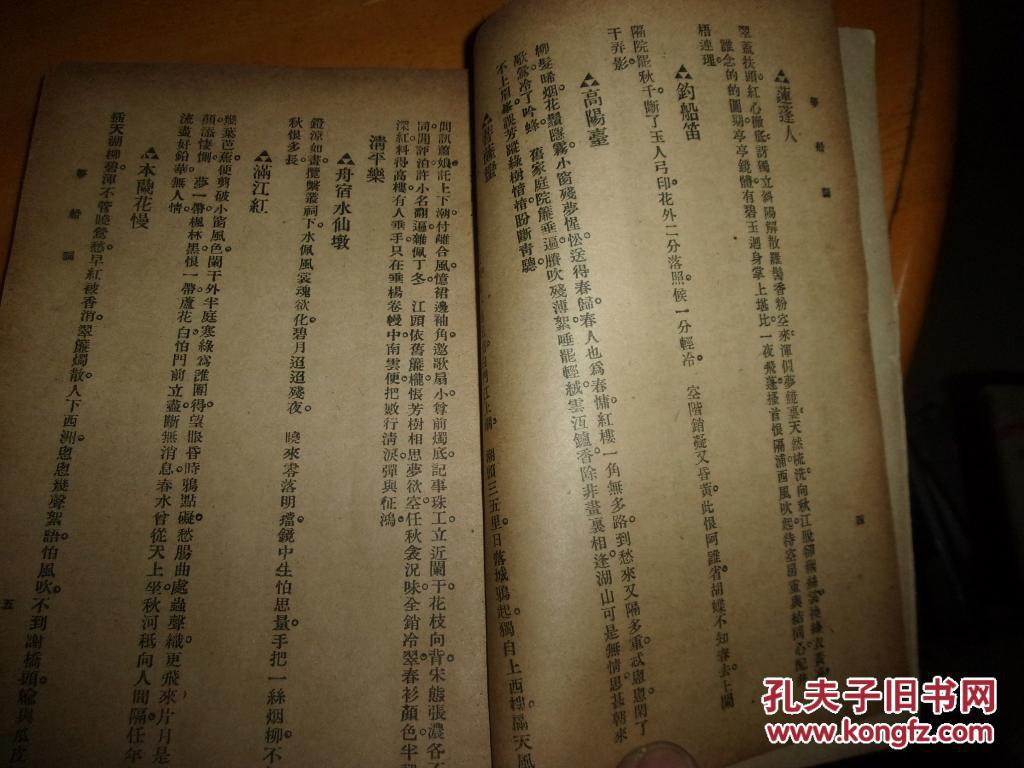 夢船詞
四
蓮蓬人
翠蓋扶頭紅心徹底訝獨立斜陽解散羅鬟香粉空來渾似夢鏡裏天然梳洗向秋江
誰念的的圓期亭亭鏡體有碧玉迴身掌上堪比一夜飛蓬搔首恨隔浦西風吹起待空房重與結同心配
梧連理
釣船笛
隔院罷秋千斷了玉人弓印花外二分落照候一分輕冷　空階銷凝又昏黃此恨阿誰省胡蝶不知春去上闌
干弄影
高陽臺
柳髮晞烟花鬚隱霧小窗殘夢惺忪送得春歸春人也爲春慵紅樓一角無多路到愁來又隔多重忒悤悤閒了
歌鶯冷了吟蜂　舊家庭院簾垂遍賸吹殘薄絮唾罷輕絨雲冱鑪香除非畫裏相逢湖山可是無情思甚朝來
不上眉峯誤芳蹤綠樹愔愔盼斷青驄
湖頭三五里日落城鴉起獨自上西樓滿天風
問訊蕭娘託上下潮付離合風憶裙邊袖角邀歌扇小尊前燭底記事珠工立近闌干花枝向背宋態張濃各不
同閒評泊許小名翻遍雜佩丁冬　江頭依舊簾櫳悵芳樹相思夢欲空任秋衾況味全銷冷翠春衫顏色半
深紅料得高樓有人垂手只在垂楊卷幔中南雲便把數行清淚彈與征鴻
清平樂
舟宿水仙墩
鐙涼如畫攬檠叢祠下水佩風裳魂欲化碧月迢迢殘夜　曉來零落明璫鏡中生怕思量手把一絲烟柳不
秋恨多長
滿江紅
幾葉芭蕉便剪破小窗風色闌干外半庭寒綠爲誰團得望眼昏時鴉點礙愁腸曲處蟲聲織更飛來片月是
顏添悽惻　夢一帶楓林黑恨一帶蘆花白怕門前立盡斷無消息春水曾從天上坐秋河秪向人間隔任年
流盡好鉛華無人情
木蘭花慢
插天湖柳碧渾不管曉鶯愁早紅被香消翠簾燭散人下西洲悤悤幾聲絮語怕風吹不到謝橋頭艙與瓜皮
夢船詞
五
孔夫子旧书网